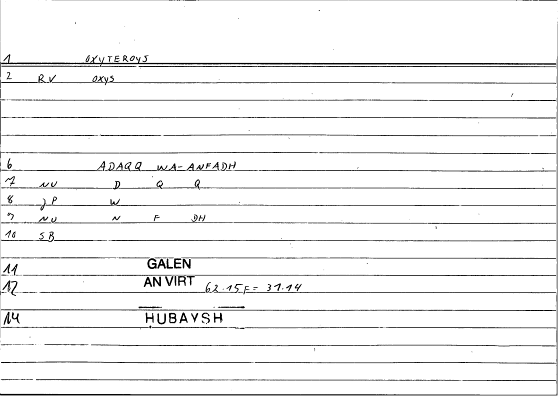 1 OXYTEROYS
2 RV OXYS
6 ADAQQ WA-ANFADH
7 NU D Q Q
8 JP W
9 NU N F DH
10 SB
11 GALEN
12 AN VIRT 62.15F = 31.14
14 HUBAYSH